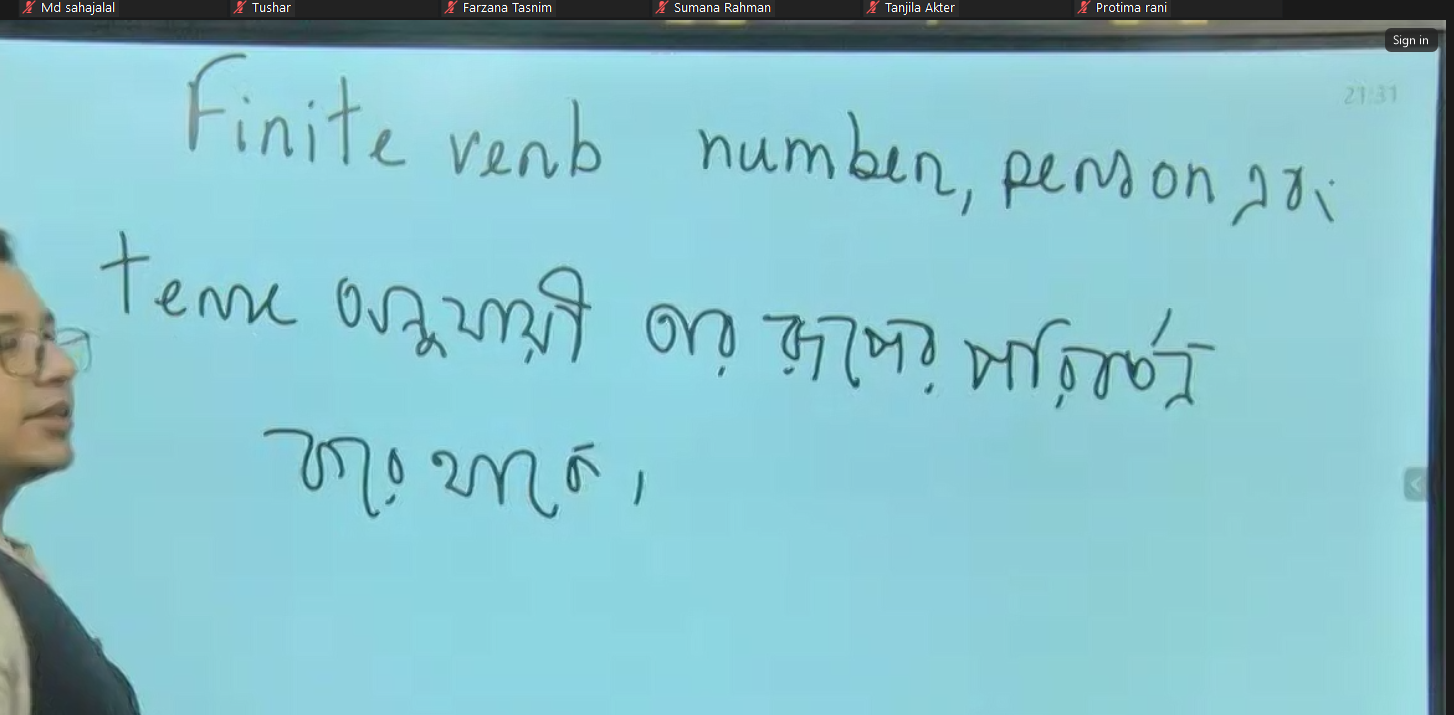 Md sahajalal Tushar Farzana Tasnim Sumana Rahman Tanjila Akter Protima rani
Sign in
21:31
Finite verb number, person এবং
tense অনুযায়ী তার রূপের পরিবর্তন
করে থাকে।